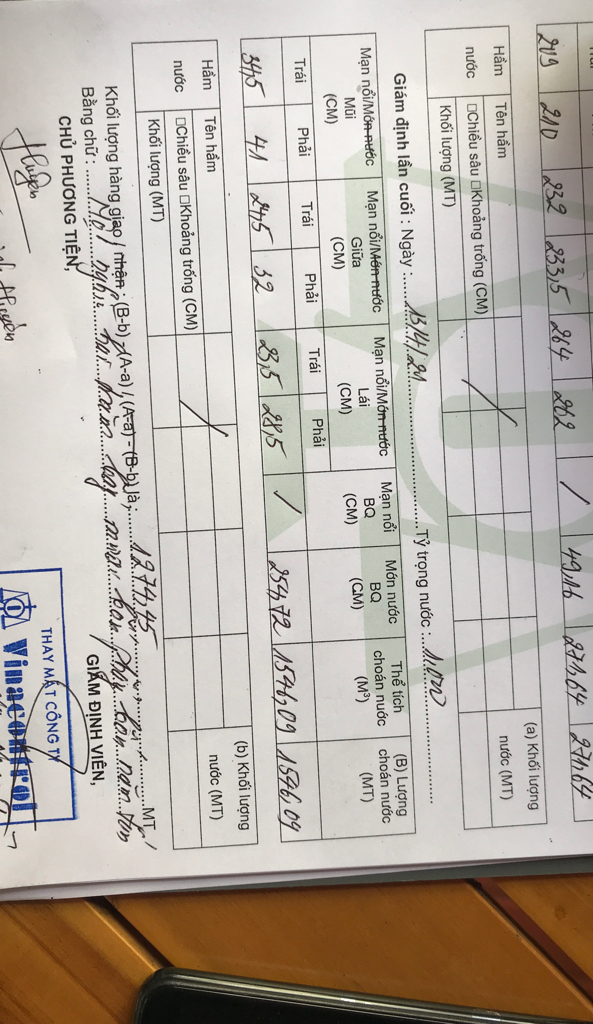 219 210 232 233,5 264 262 / 49,16 271,64 271,64
Hầm nước Tên hầm (a) Khối lượng nước (MT)
□Chiều sâu □Khoảng trống (CM) /
Khối lượng (MT)
Giám định lần cuối : Ngày : 13/4/21 Tỷ trọng nước : 1,000
Mạn nổi/Món nước Mũi (CM) Mạn nổi/Món nước Giữa (CM) Mạn nổi/Món nước Lái (CM) Mạn nổi BQ (CM) Món nước BQ (CM) Thể tích choán nước (M³) (B) Lượng choán nước (MT)
Trái Phải Trái Phải Trái Phải
34,5 41 24,5 32 23,5 28,5 / 254,72 1546,09 1546,09
Hầm nước Tên hầm (b) Khối lượng nước (MT)
□Chiều sâu □Khoảng trống (CM) /
Khối lượng (MT)
Khối lượng hàng giao / nhận, (B-b) - (A-a) / (A-a) - (B-b) là : 1274,45 MT
Bằng chữ : Một nghìn hai trăm bảy mươi bốn phẩy bốn năm tấn
CHỦ PHƯƠNG TIỆN, GIÁM ĐỊNH VIÊN,
THAY MẶT CÔNG TY
Vinacontrol
Huyên